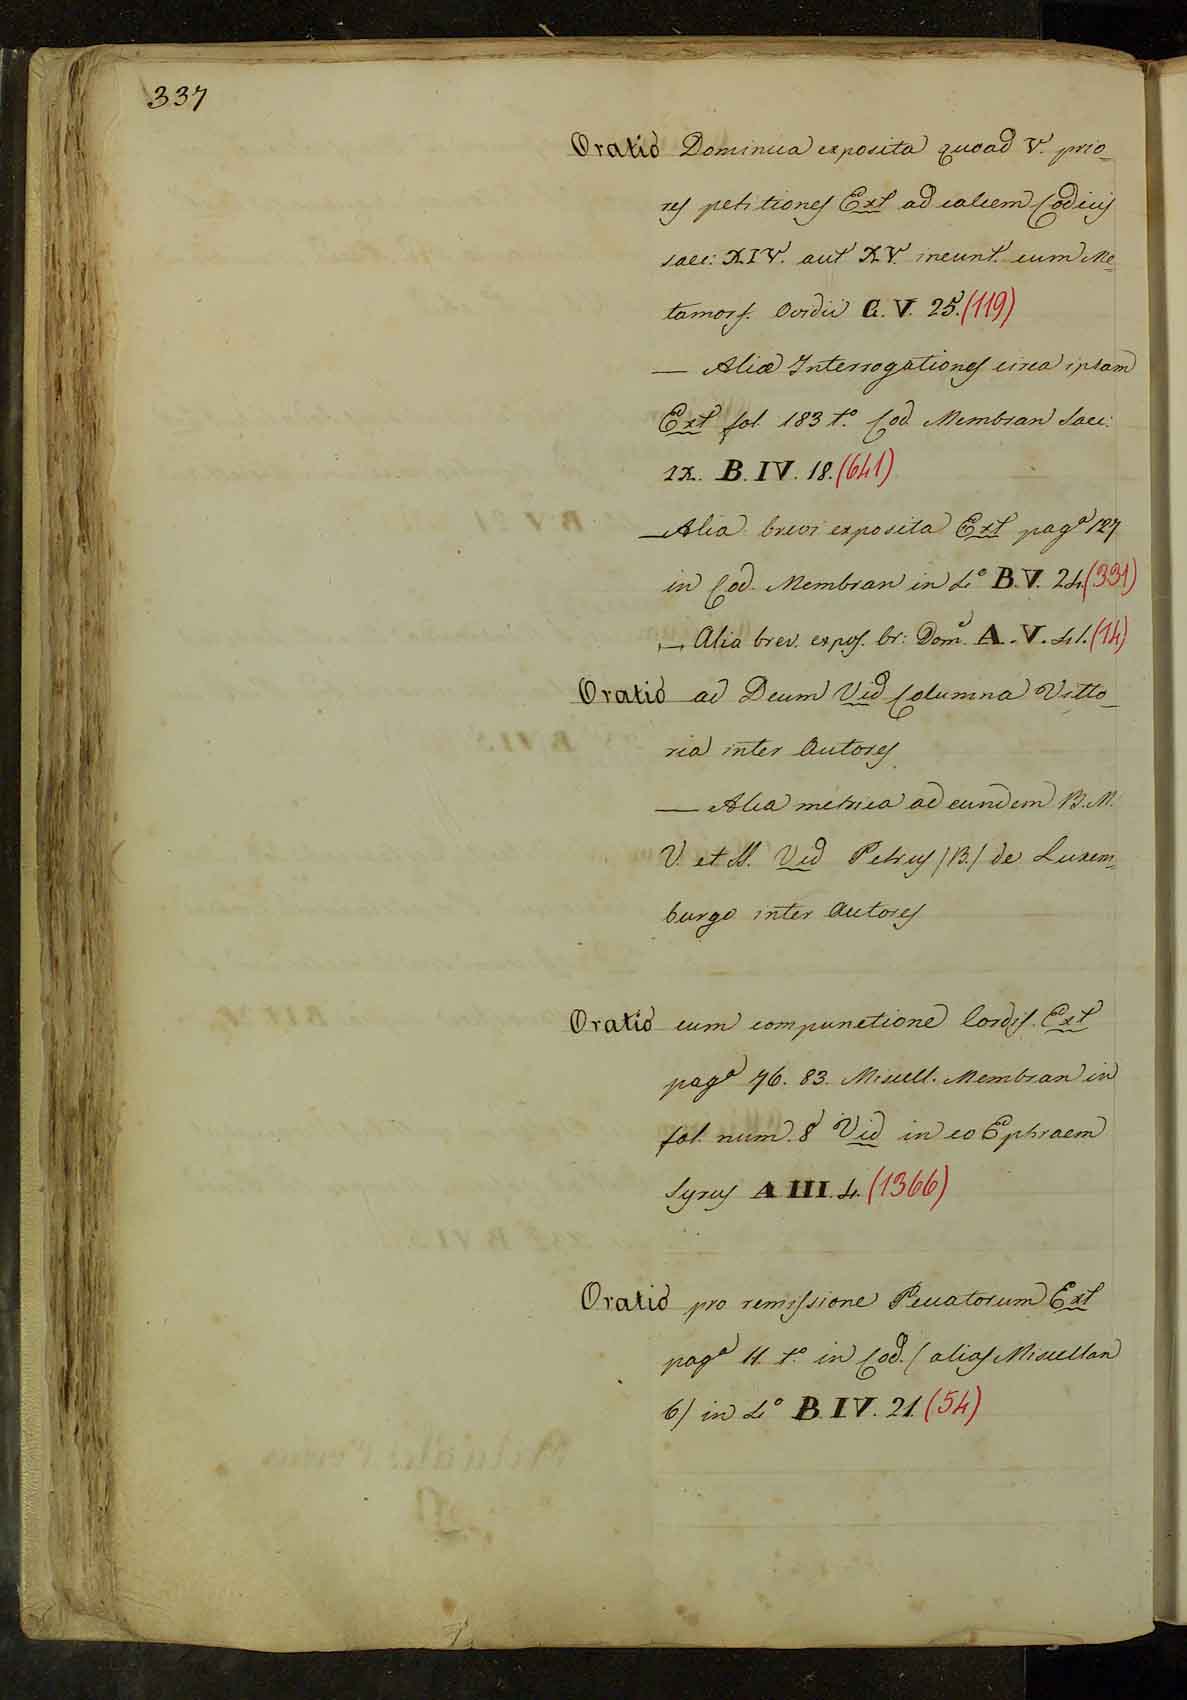 337
Oratio Dominica exposita quoad V. prio_
res petitiones Ext ad calcem Codicis
saec: XIV. aut XV. ineunt. cum Me_
tamorf. Ovidii G. V. 25. (119)
— Aliae Interrogationes circa ipsam
Ext fol. 183 t.º Cod. Membran saec:
IX. B. IV. 18. (641)
— Alia brevi exposita Ext pag.ª 127
in Cod. Membran in 4.º B. V. 24. (331)
— Alia brev. expos. Or: Dom.e A. V. 41. (14)
Oratio ad Deum Vid Columna Vitto_
ria inter Autores
— Alia metrica ad eundem B. M.
V. et M. Vid Petrus /B./ de Luxem_
burgo inter Autores
Oratio cum compunctione Cordis. Ext
pag.ª 76. 83. Miscell. Membran in
fol. num. 8 Vid in eo Ephraem
Syrus A III. 4. (1366)
Oratio pro remissione Peccatorum Ext
pag.ª 11. t.º in Cod. / alias Miscellan
6 / in 4.º B. IV. 21. (54)